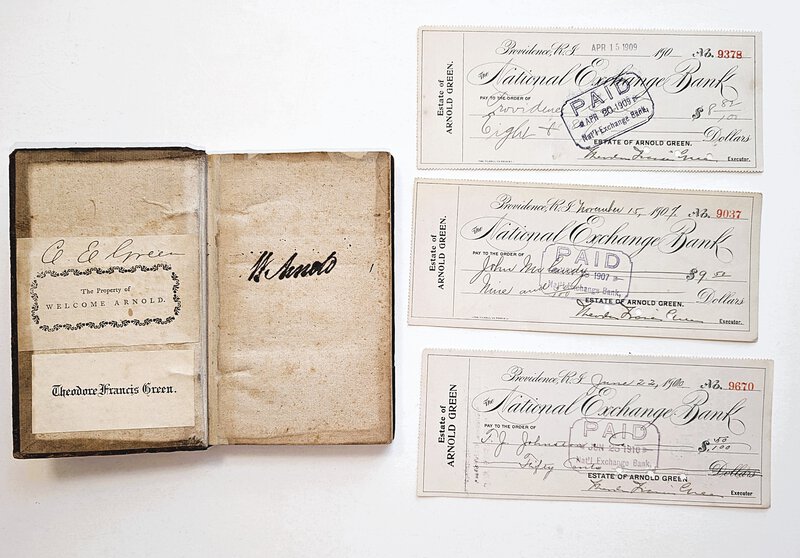 C E Green
The Property of
WELCOME ARNOLD.
Theodore Francis Green.
W Arnold
Estate of
ARNOLD GREEN.
Providence, R.I. APR 15 1909 190 No. 9378
The National Exchange Bank
PAY TO THE ORDER OF
Providence
$8 82/100
Eight &
Dollars
PAID
APR 20 1909
Nat'l Exchange Bank,
ESTATE OF ARNOLD GREEN.
Theodore Francis Green
Executor.
Estate of
ARNOLD GREEN.
Providence, R.I. November 15, 1907. No. 9037
The National Exchange Bank
PAY TO THE ORDER OF
John
$9 50
Nine and 50/100
Dollars
PAID
1907
Nat'l Exchange Bank,
ESTATE OF ARNOLD GREEN.
Theodore Francis Green
Executor.
Estate of
ARNOLD GREEN
Providence, R.I. June 22, 1910 No. 9670
The National Exchange Bank
PAY TO THE ORDER OF
T. J. Johnston
$ 50/100
Fifty cents
Dollars
PAID
JUN 25 1910
Nat'l Exchange Bank,
ESTATE OF ARNOLD GREEN
Theodore Francis Green
Executor